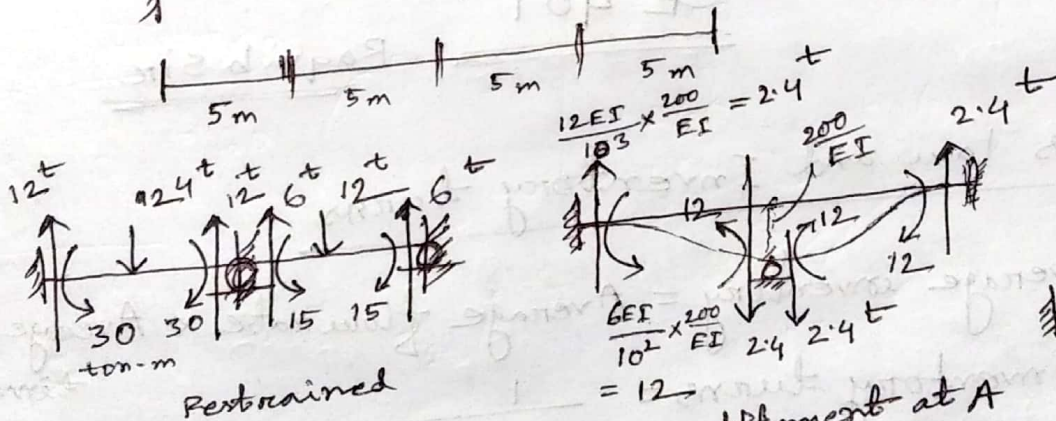 5m 5m 5m 5m
12^t 24^t 12^t 6^t 12^t 6^t
30 30 15 15
ton-m
Restrained
12EI/10³ × 200/EI = 2.4^t
200/EI
2.4^t
12 12
12
6EI/10² × 200/EI
= 12
2.4 2.4^t
at A